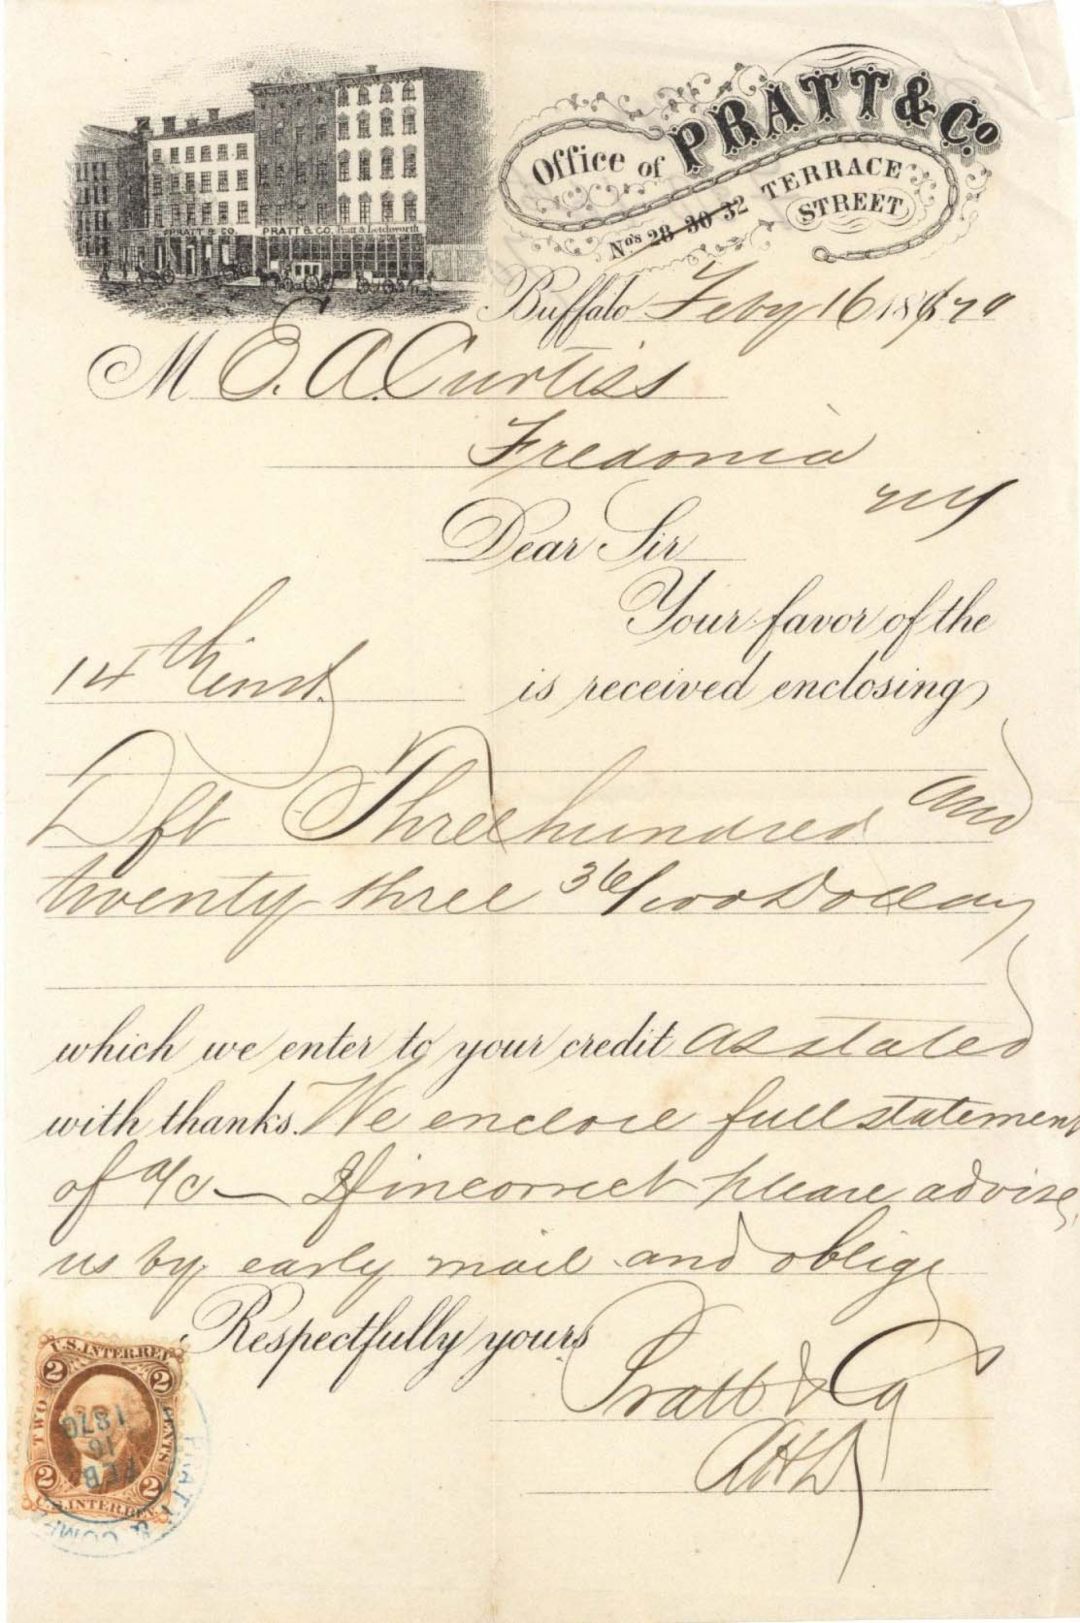 PRATT & CO. PRATT & CO. Pratt & Letchworth
Office of PRATT & Co.
Nos 28 30 32 TERRACE
STREET
Buffalo Feby 16 1870
M E. A. Curtiss
Fredonia
NY
Dear Sir
Your favor of the
14th inst. is received enclosing
Dft Three hundred and
twenty three 36/100 Dollars
which we enter to your credit as stated
with thanks. We enclose full statement
of a/c — If incorrect please advise
us by early mail and oblige
Respectfully yours
Pratt & Co
U.S. INTER. REV.
2 2
TWO CENTS
FEB 16 1870
2 2
U.S. INTER. REV.
PRATT & COMP